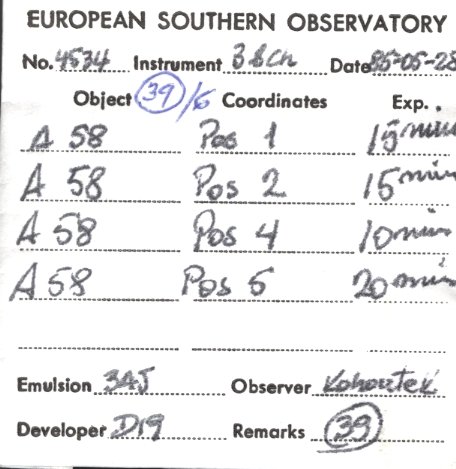 EUROPEAN SOUTHERN OBSERVATORY
No. 4534 Instrument B&Ch Date 85-05-28
Object 39/6 Coordinates Exp.
A 58 Pos 1 15 min
A 58 Pos 2 15 min
A 58 Pos 4 10 min
A 58 Pos 5 20 min
Emulsion 3AJ Observer Kohoutek
Developer D19 Remarks 39